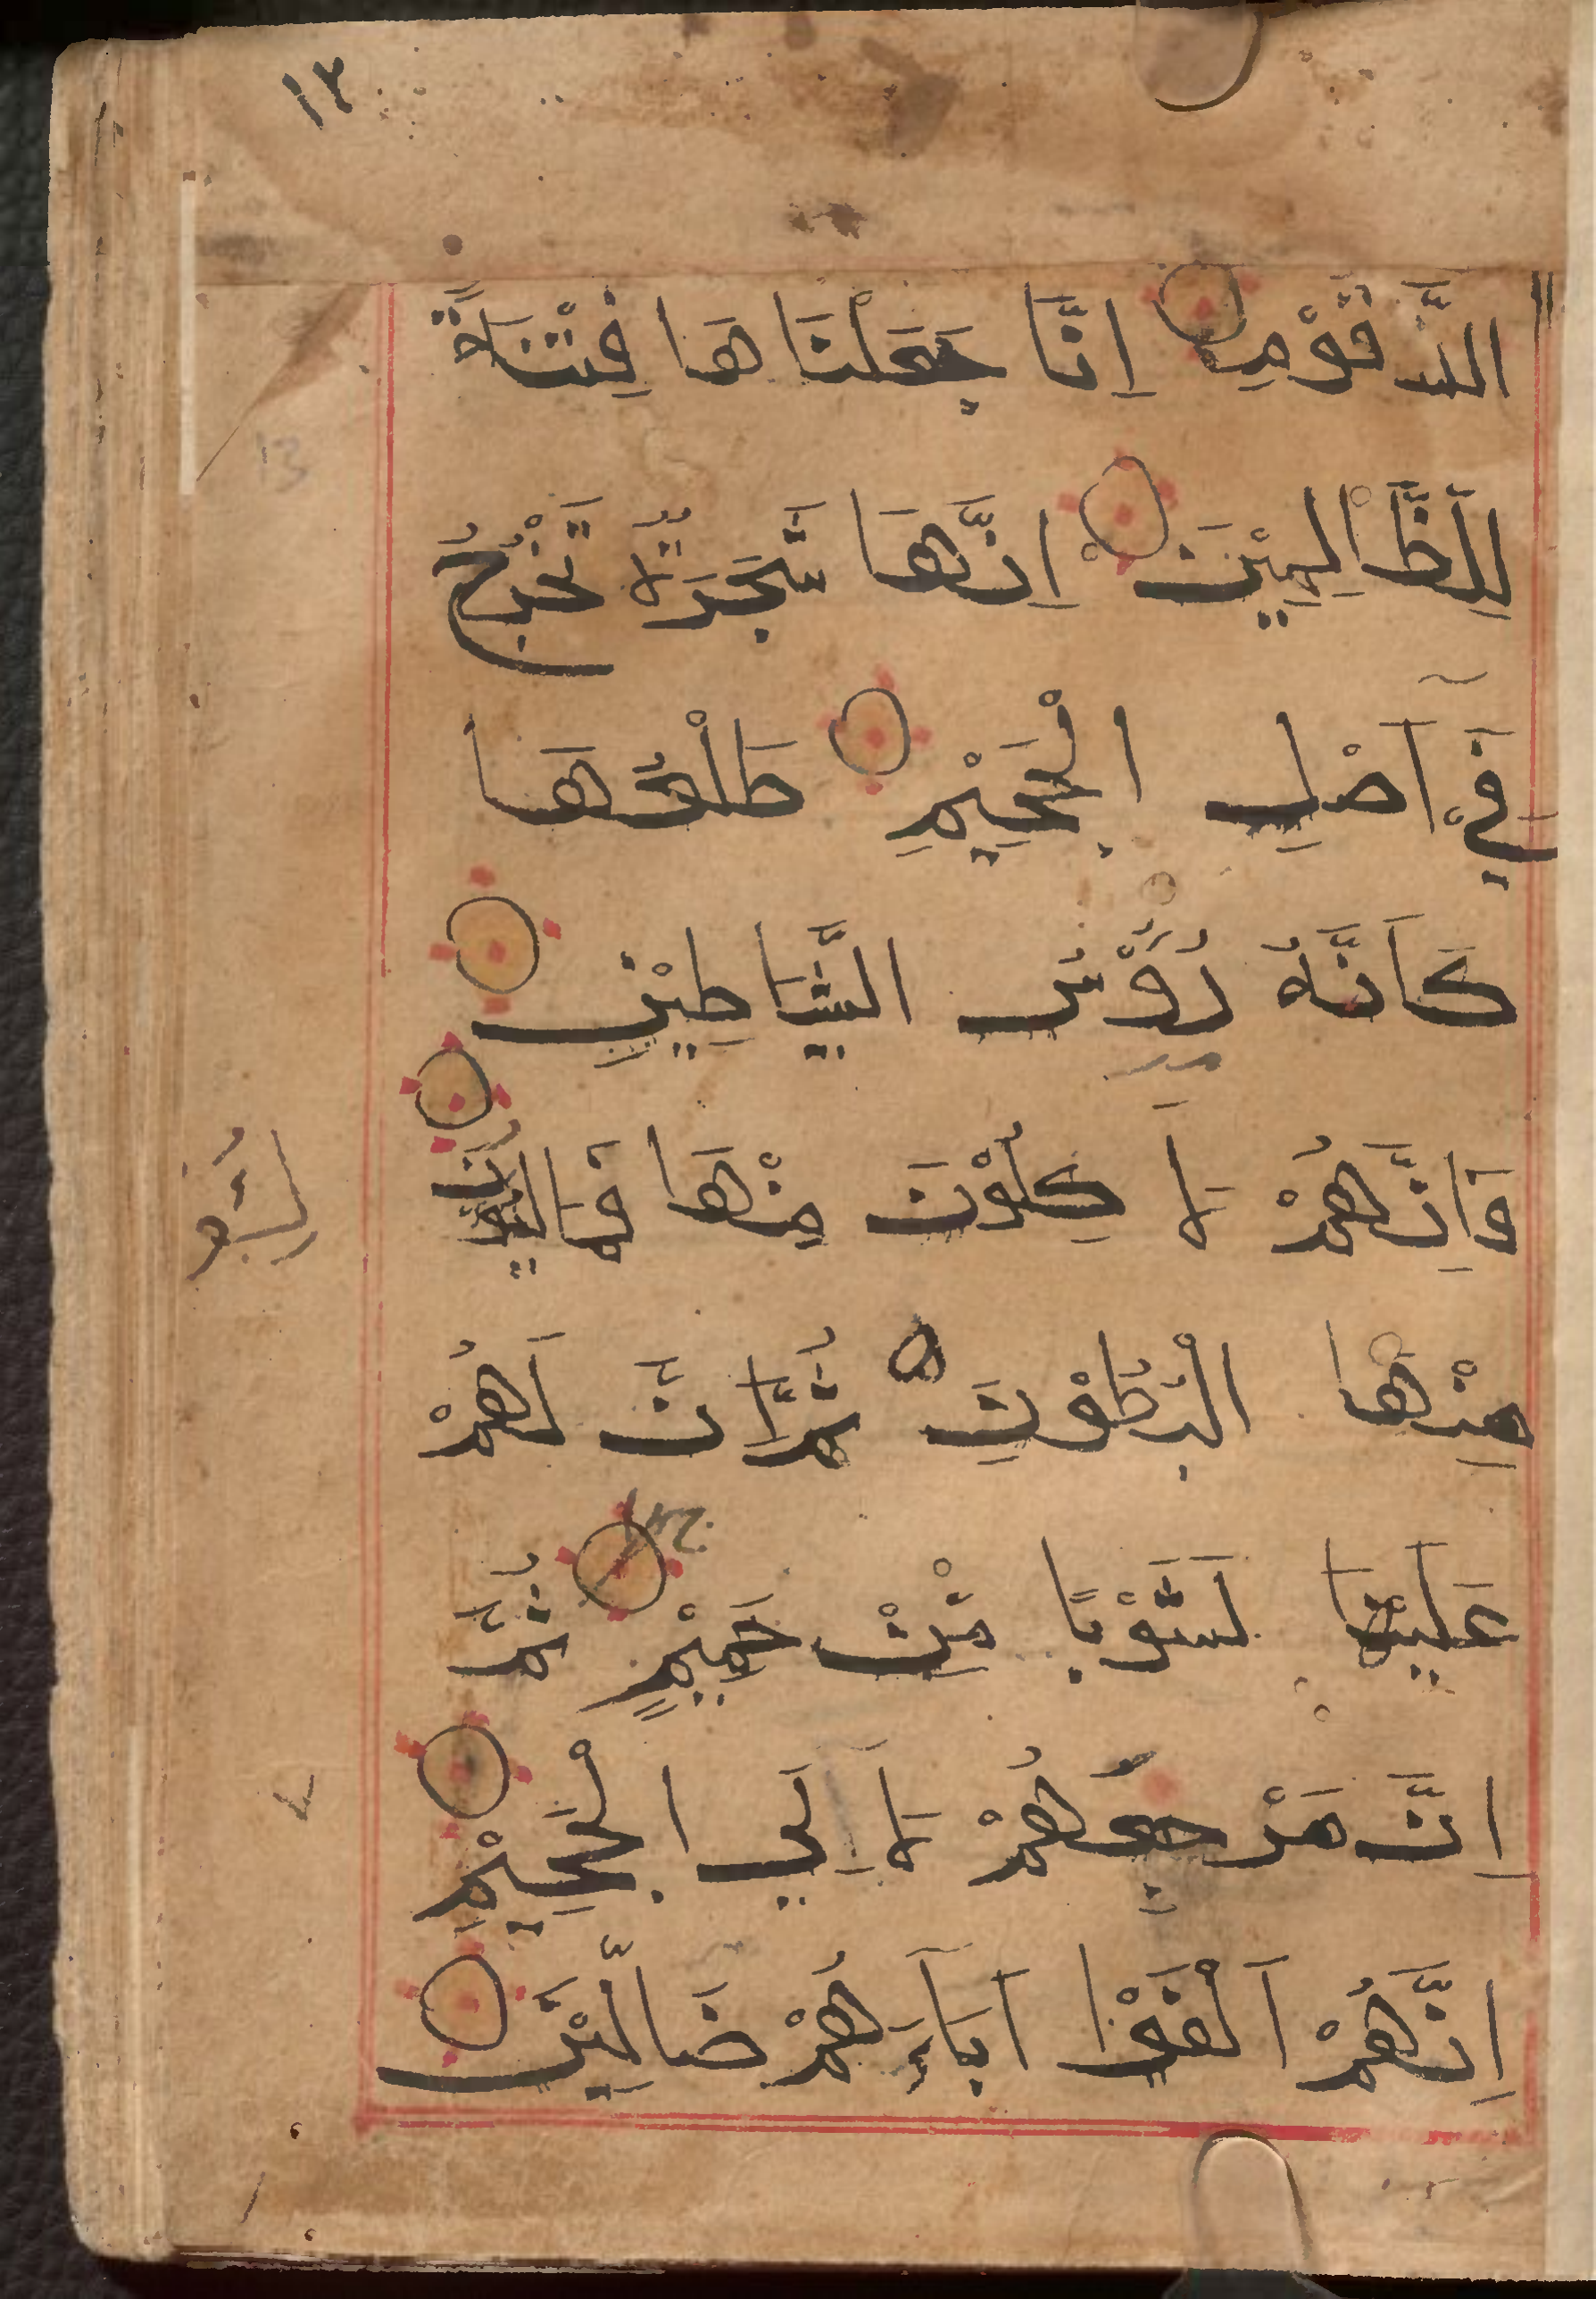 ١٣
الزَّقُّوْمِ اِنَّا جَعَلْنَاهَا فِتْنَةً
لِلظَّالِمِيْنَ اِنَّهَا شَجَرَةٌ تَخْرُجُ
فِيْ اَصْلِ الْجَحِيْمِ طَلْعُهَا
كَاَنَّهُ رُءُوْسُ الشَّيَاطِيْنِ
فَاِنَّهُمْ لَاٰكِلُوْنَ مِنْهَا فَمَالِئُوْنَ
مِنْهَا الْبُطُوْنَ ثُمَّ اِنَّ لَهُمْ
عَلَيْهَا لَشَوْبًا مِّنْ حَمِيْمٍ ثُمَّ
اِنَّ مَرْجِعَهُمْ لَاَ اِلَى الْجَحِيْمِ
اِنَّهُمْ اَلْفَوْا اٰبَآءَهُمْ ضَالِّيْنَ
13